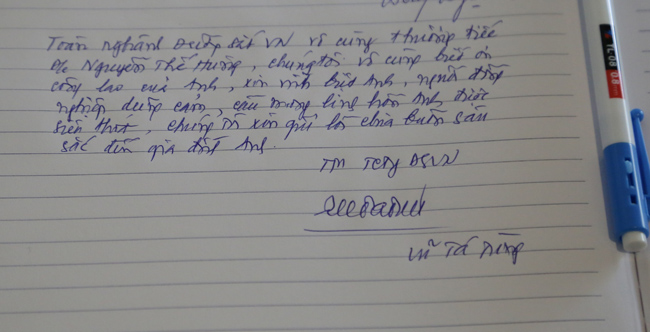 Toàn nghành Đường sắt VN vô cùng thương tiếc
đ/c Nguyễn Thế Hường, chúng tôi vô cùng biết ơn
công lao của Anh, xin vĩnh biệt Anh, người đồng
nghiệp dũng cảm, cầu mong linh hồn Anh được
siêu thoát, chúng tôi xin gửi lời chia buồn sâu
sắc đến gia đình Anh.
TM TCTy ĐSVN
Vũ Tá Tùng
TL 08
08